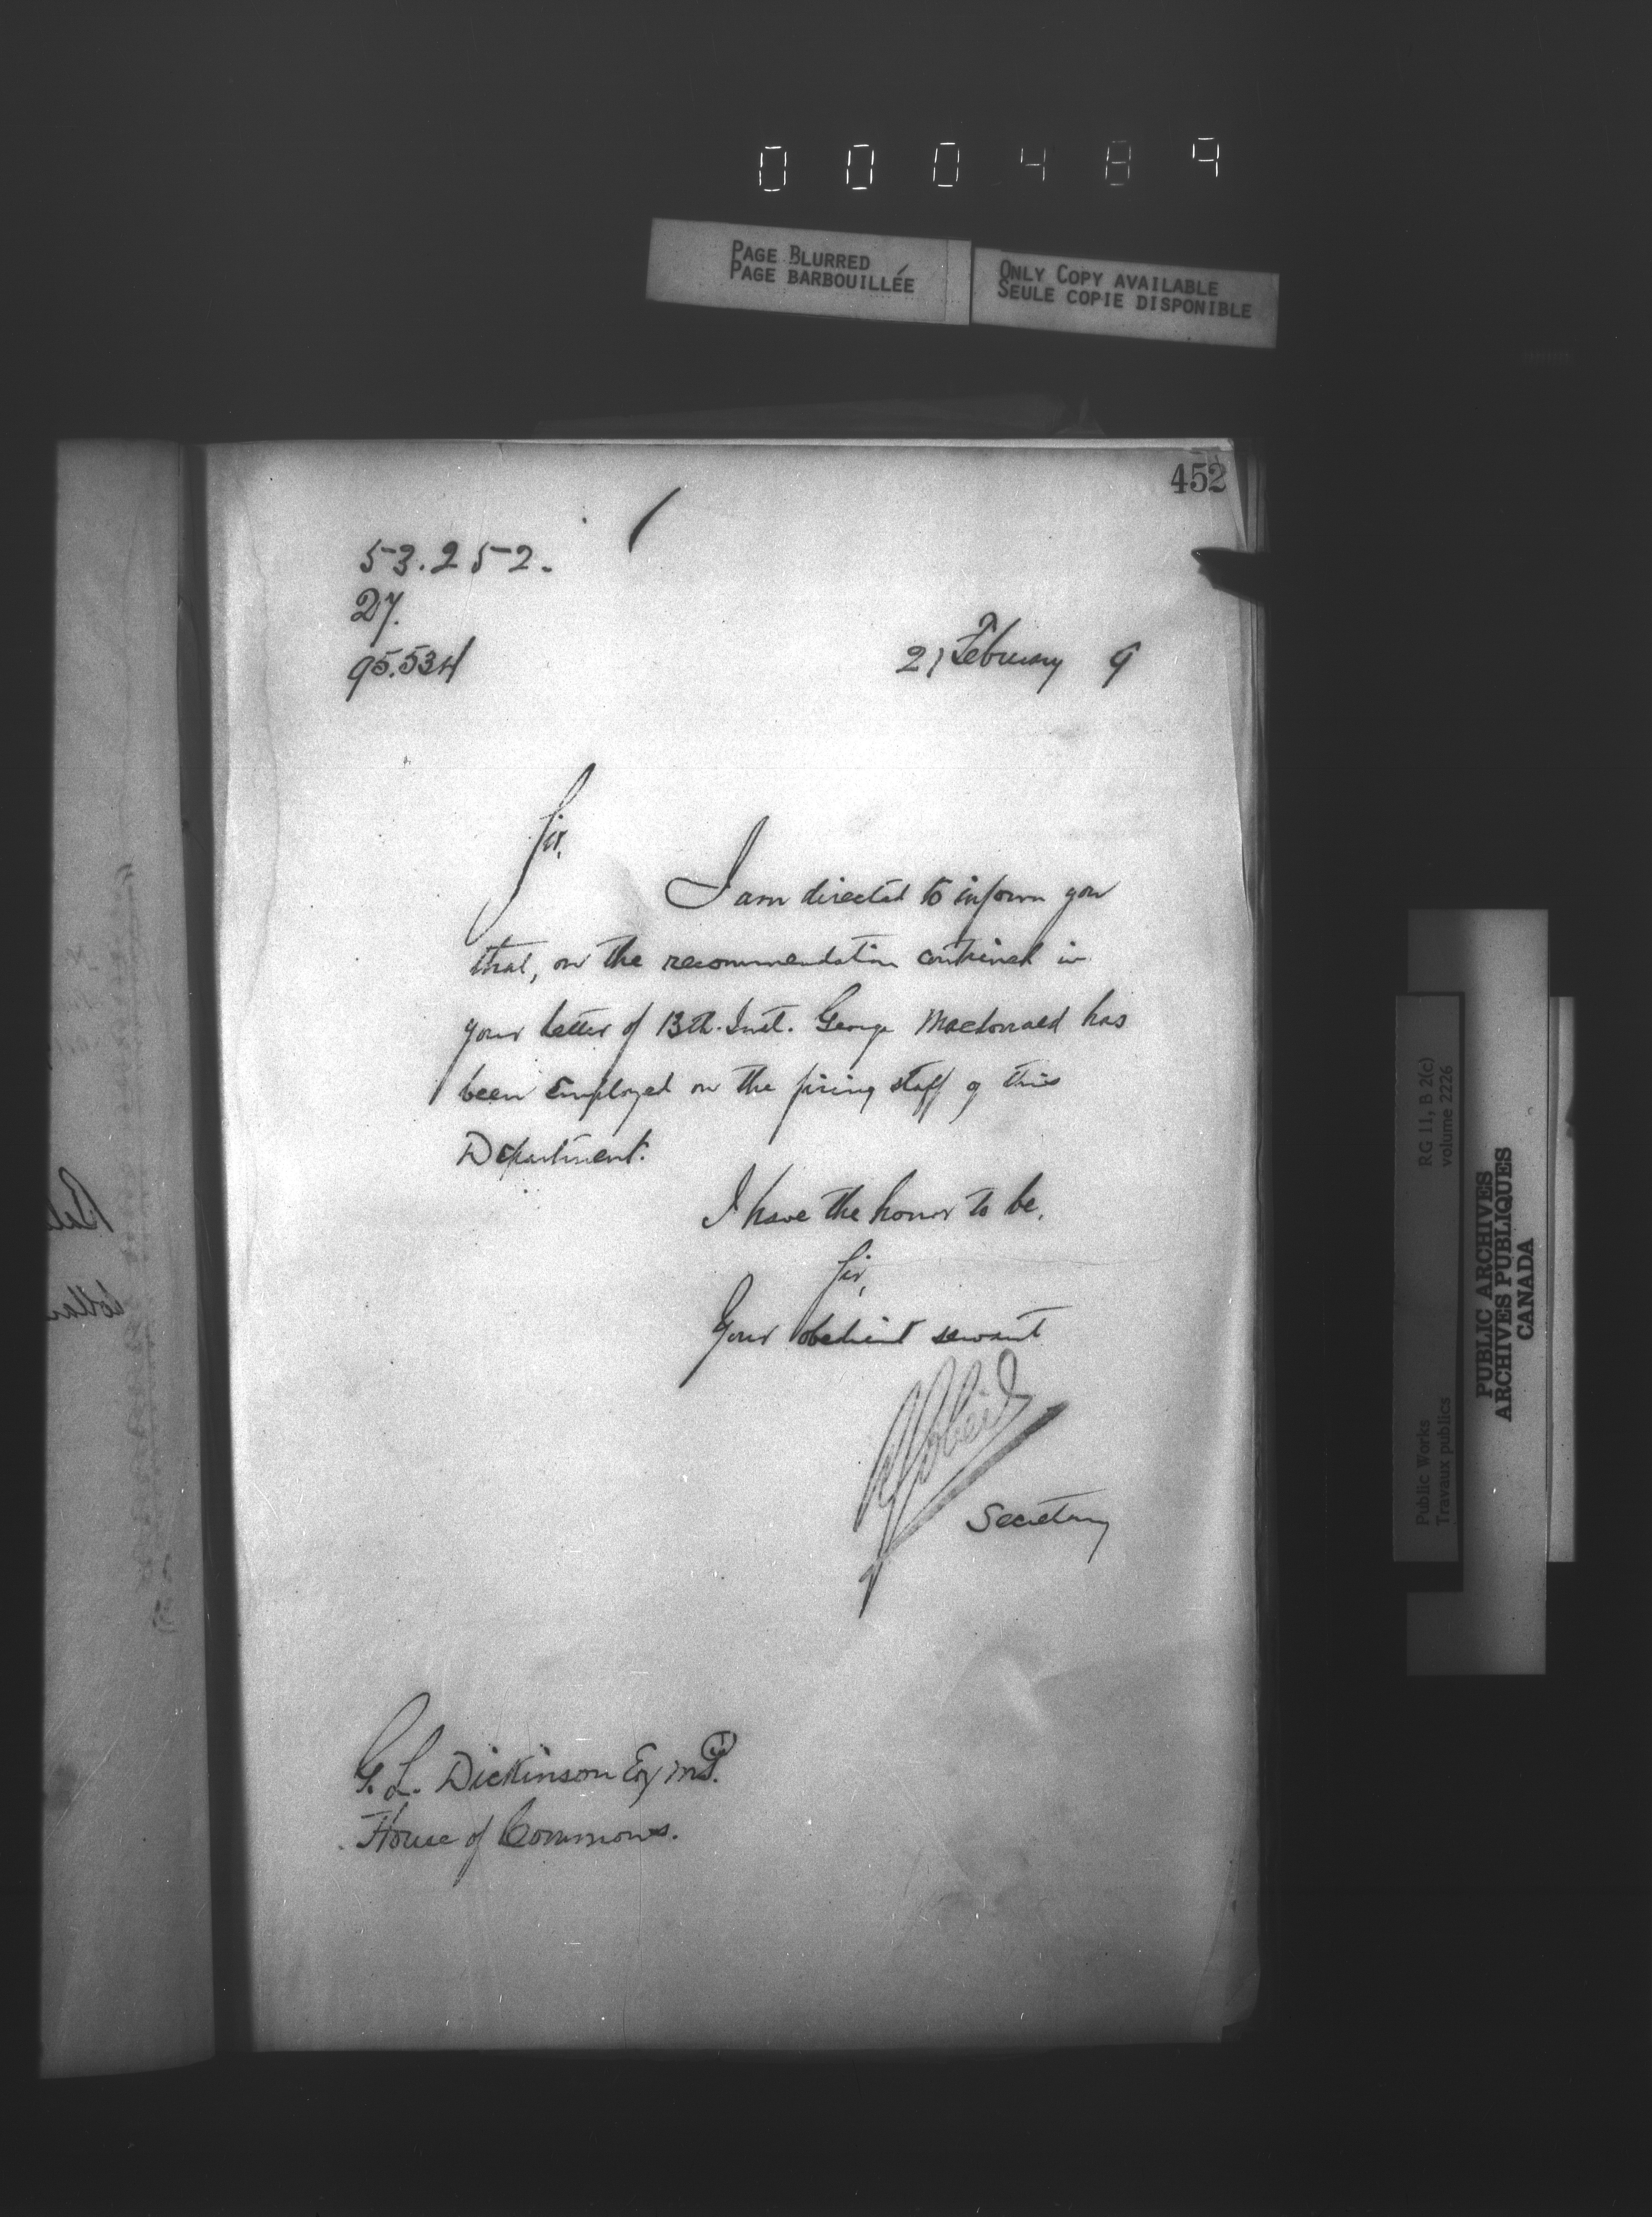 000489
PAGE BLURRED
PAGE BARBOUILLÉE
ONLY COPY AVAILABLE
SEULE COPIE DISPONIBLE
452
53.252.
27.
95.534
21 February 9
Sir,
I am directed to inform you
that, on the recommendation contained in
your letter of 13th. Inst. George Macdonald has
been employed on the firing staff of this
Department.
I have the honor to be,
Sir,
Your obedient servant
Secretary
G. L. Dickinson Esq M.P.
House of Commons.
RG 11, B 2(c)
volume 2226
Public Works
Travaux publics
PUBLIC ARCHIVES
ARCHIVES PUBLIQUES
CANADA